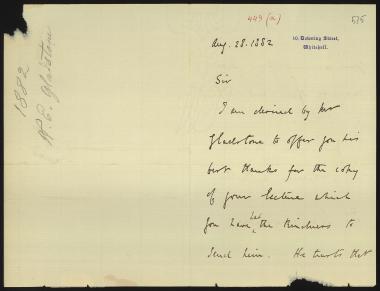 449 (a)
575
Aug. 28. 1882
10, Downing Street,
Whitehall.
Sir
I am desired by Mr
Gladstone to offer you his
best thanks for the copy
of your lecture which
you have had the kindness to
send him. He trusts that
1882
W. E. Gladstone